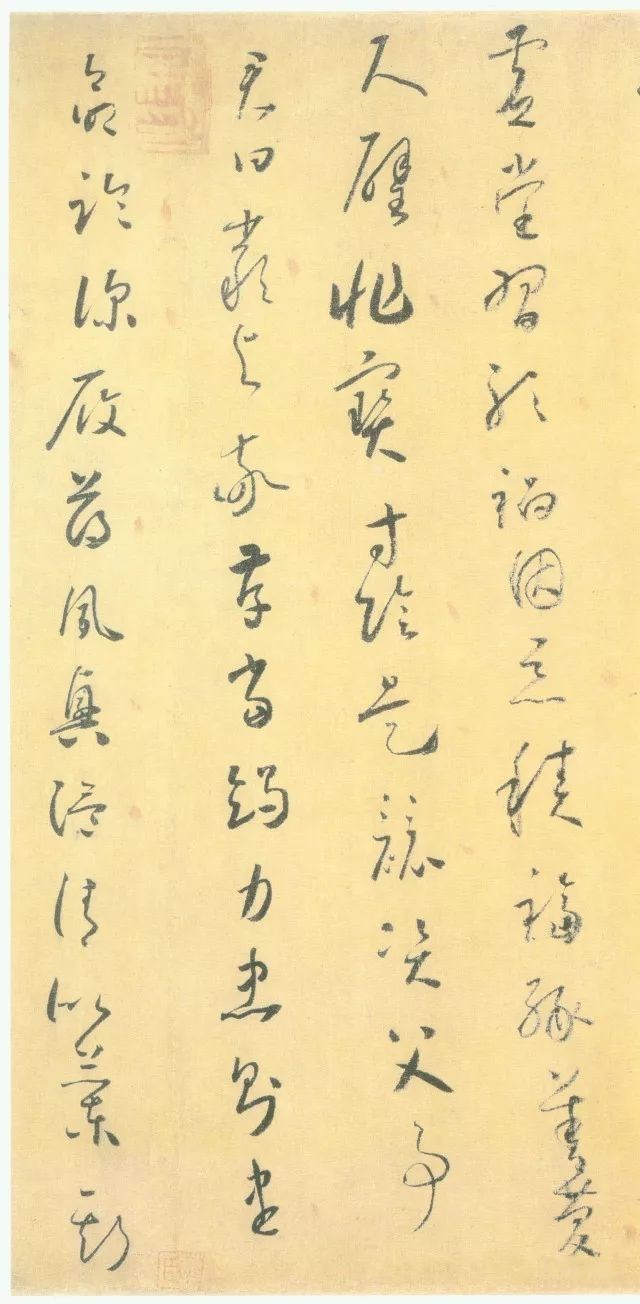 虛堂習聽禍因惡積福緣善慶
尺璧非寶寸陰是競資父事
君曰嚴與敬孝當竭力忠則盡
命臨深履薄夙興溫清似蘭斯